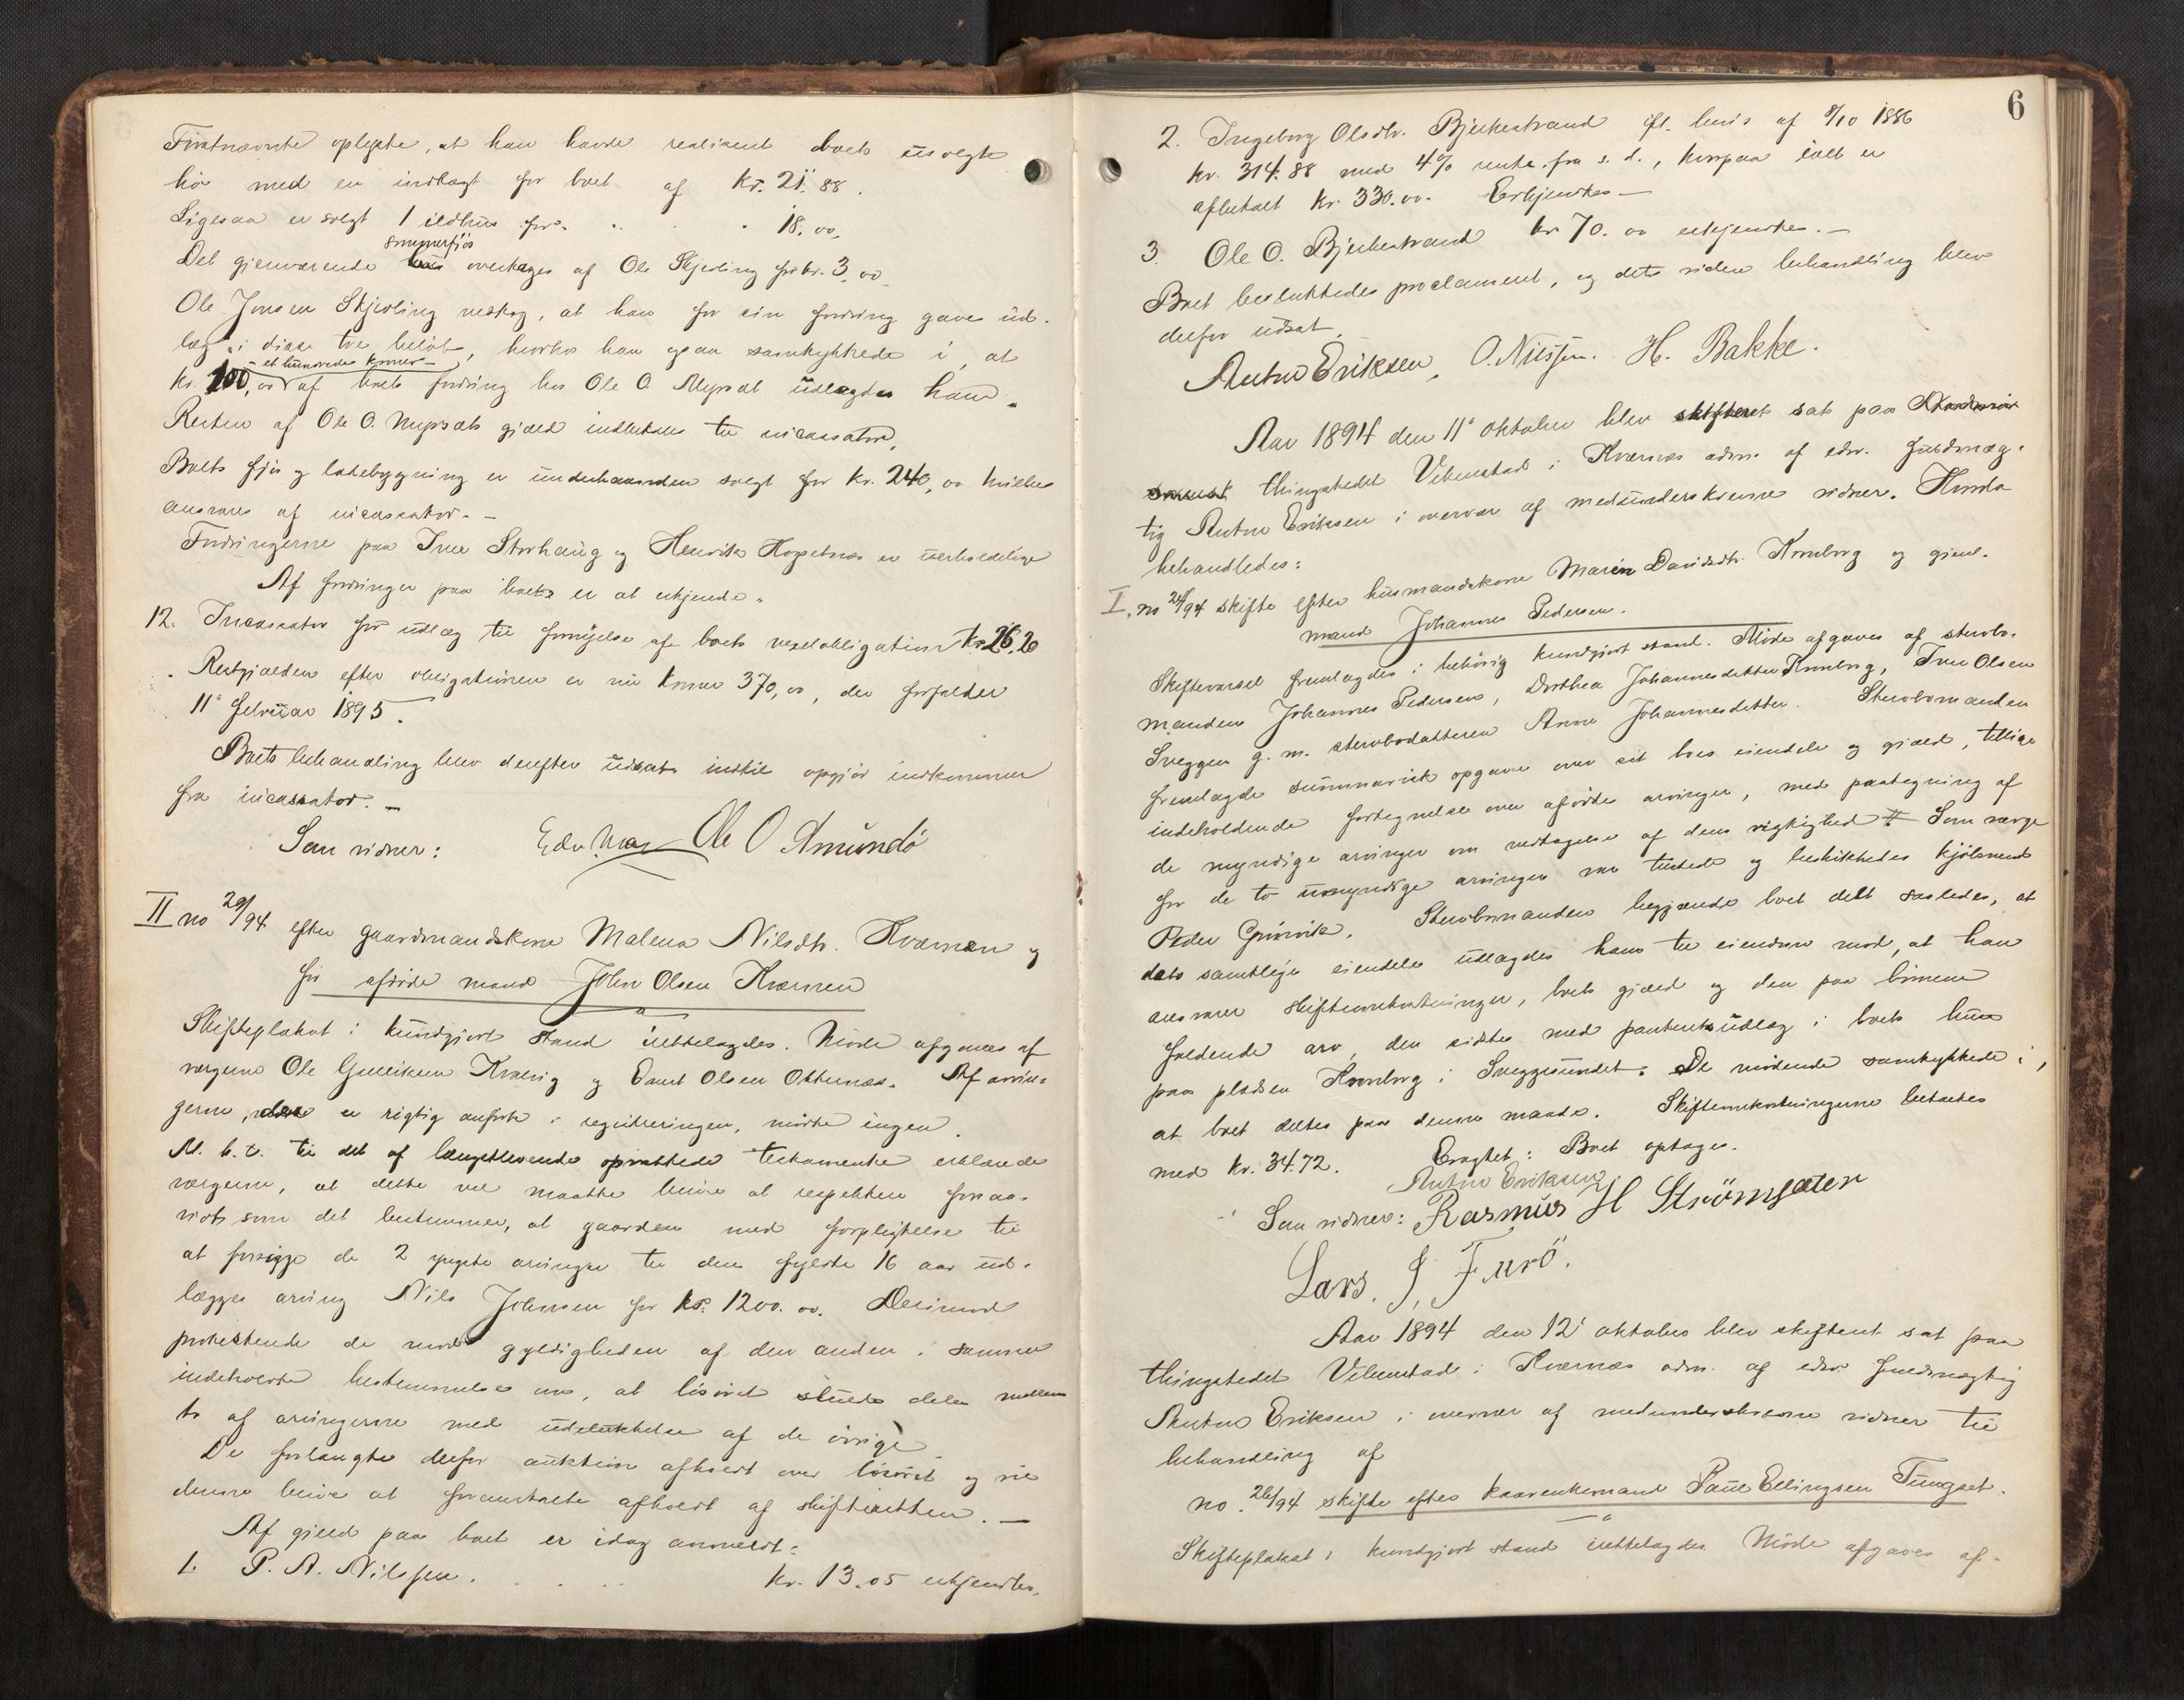 Förstnævnte oplyste, at han havde realiseret boets usolgte
hö med en indtægt for boet af Kr. 21. 88.
Ligesaa er solgt 1 ildhus for . . . 18. 00.
Det gjenværende sommerfjös overtages af Ole Skjevling for kr. 3. 00
Ole Jonsen Skjevling vedtog, at han for sin fordring gaves ud-
læg i disse tre beløb, hvorhos han ogsaa samtykkede i, at
kr. 100,00 - et hundrede kroner - af boets fordring hos Ole O. Mypsæt udlægdes ham.
Resten af Ole O. Mypsæts gjæld indbetales til incassator.
Boets fjös og ladebygning er underhaanden solgt for kr. 240,00 hvilke
ansvares af incassator. -
Fordringerne paa Iver Storhaug og Henrik Hopstnæs er uerholdelige
Af fordringer paa boet er at erkjende.
12. Incassator för udlæg til fornyelse af boets vexelobligation kr 26.20
Restgjælden efter obligationen er nu kroner 370,00, der forfalder
11te februar 1895.
Boets behandling blev derefter udsat indtil opgjör indkommer
fra incassator. -
Som vidner: Ole O Amundö
II no 29/94 efter gaardmandskone Malena Nilsdtr. Kværnen og
för afdöde mand John Olsen Kværnen
Skifteplakat i kundgjort stand irettelagdes. Möde afgaves af
værgerne Ole Gulliksen Kvernig og Knut Olsen Otternes. Af arvin-
gerne, der er rigtig anfört i registreringen, mödte ingen.
M. h. t. til det af længstlevende oprettede testamente erklærede
værgerne, at dette vel maatte blive at respektere forsaa-
vidt som det bestemmer, at gaarden med forpligtelse til
at forsörge de 2 yngste arvinger til den fyldte 16 aar ud-
lægges arving Nils Johnsen for kr. 1200. 00. Derimod
protesterede de mod gyldigheden af den anden i samme
indeholdte bestemmelse om, at lösöret skulde deles mellem
to af arvingerne med udelukkelse af de övrige
De forlangte derfor auktion afholdt over lösöret og vil
denne blive at foranstalte afholdt af skifteretten. -
Af gjeld paa boet er idag anmeldt:
1. P. A. Nilssen. . . . kr. 13.05 erkjendtes.
6
2. Ingeborg Olsdtr. Bjerkestrand ifl. bevis af 8/10 1886
kr. 314.88 med 4% rente fra s. d., hvorpaa ialt er
afbetalt kr. 330.00. Erkjendtes -
3. Ole O. Bjerkestrand kr 70. 00 erkjendtes. -
Boet besluttedes proclameret, og dets videre behandling blev
derfor udsat.
Anton Eriksen, O. Nilssen. H. Bakke.
Aar 1894 den 11te oktober blev skifteret sat paa
thingstedet Vebenstad i Kvernes adm. af edsv. fuldmæg-
tig Anton Eriksen i overvær af medunderskrevne vidner. Hvorda
behandledes:
I. no 24/94 skifte efter husmandskone Maren Davidsdtr. Kronborg og gjenl.
mand Johannes Pedersen.
Skiftevarsel fremlagdes i behörig kundgjort stand. Möde afgaves af stervbo-
manden Johannes Pedersen, Dorthea Johannesdatter Kronborg, Iver Olsen
Sveggen g. m. stervbodatteren Anne Johannesdatter. Stervbomanden
fremlagde summarisk opgave over sit boes eiendele og gjæld, tillige
indeholdende fortegnelse over afdödes arvinger, med paategning af
de myndige arvinger om vedtagelse af dens rigtighed. Som værge
for de to umyndige arvinger var tilstede og beskikkedes kjölsvend
Peder Grönvik. Stervbomanden begjærede boet delt saaledes, at
dets samtlige eiendele udlagdes ham til eiendom mod, at han
ansvarer skifteomkostninger, boets gjæld og den paa börnene
faldende arv, den sidste med panteretsudlæg i boets hus
paa pladsen Kronborg i Sveggesundet. De mödende samtykkede i,
at boet deltes paa denne maade. Skifteomkostningerne betaltes
med kr. 34.72. Eragtet: Boet optages.
Anton Eriksen
Som vidner: Rasmus H Strömsæter
Lars. J. Furö.
Aar 1894 den 12te oktober blev skifteret sat paa
thingstedet Vebenstad i Kvernes adm. af edsv. fuldmægtig
Anton Eriksen i overvær af medunderskrevne vidner til
behandling af
no. 26/94 skifte efter kaarenkemand Paul Ellingsen Tungset.
Skifteplakat i kundgjort stand irettelagdes. Möde afgaves af